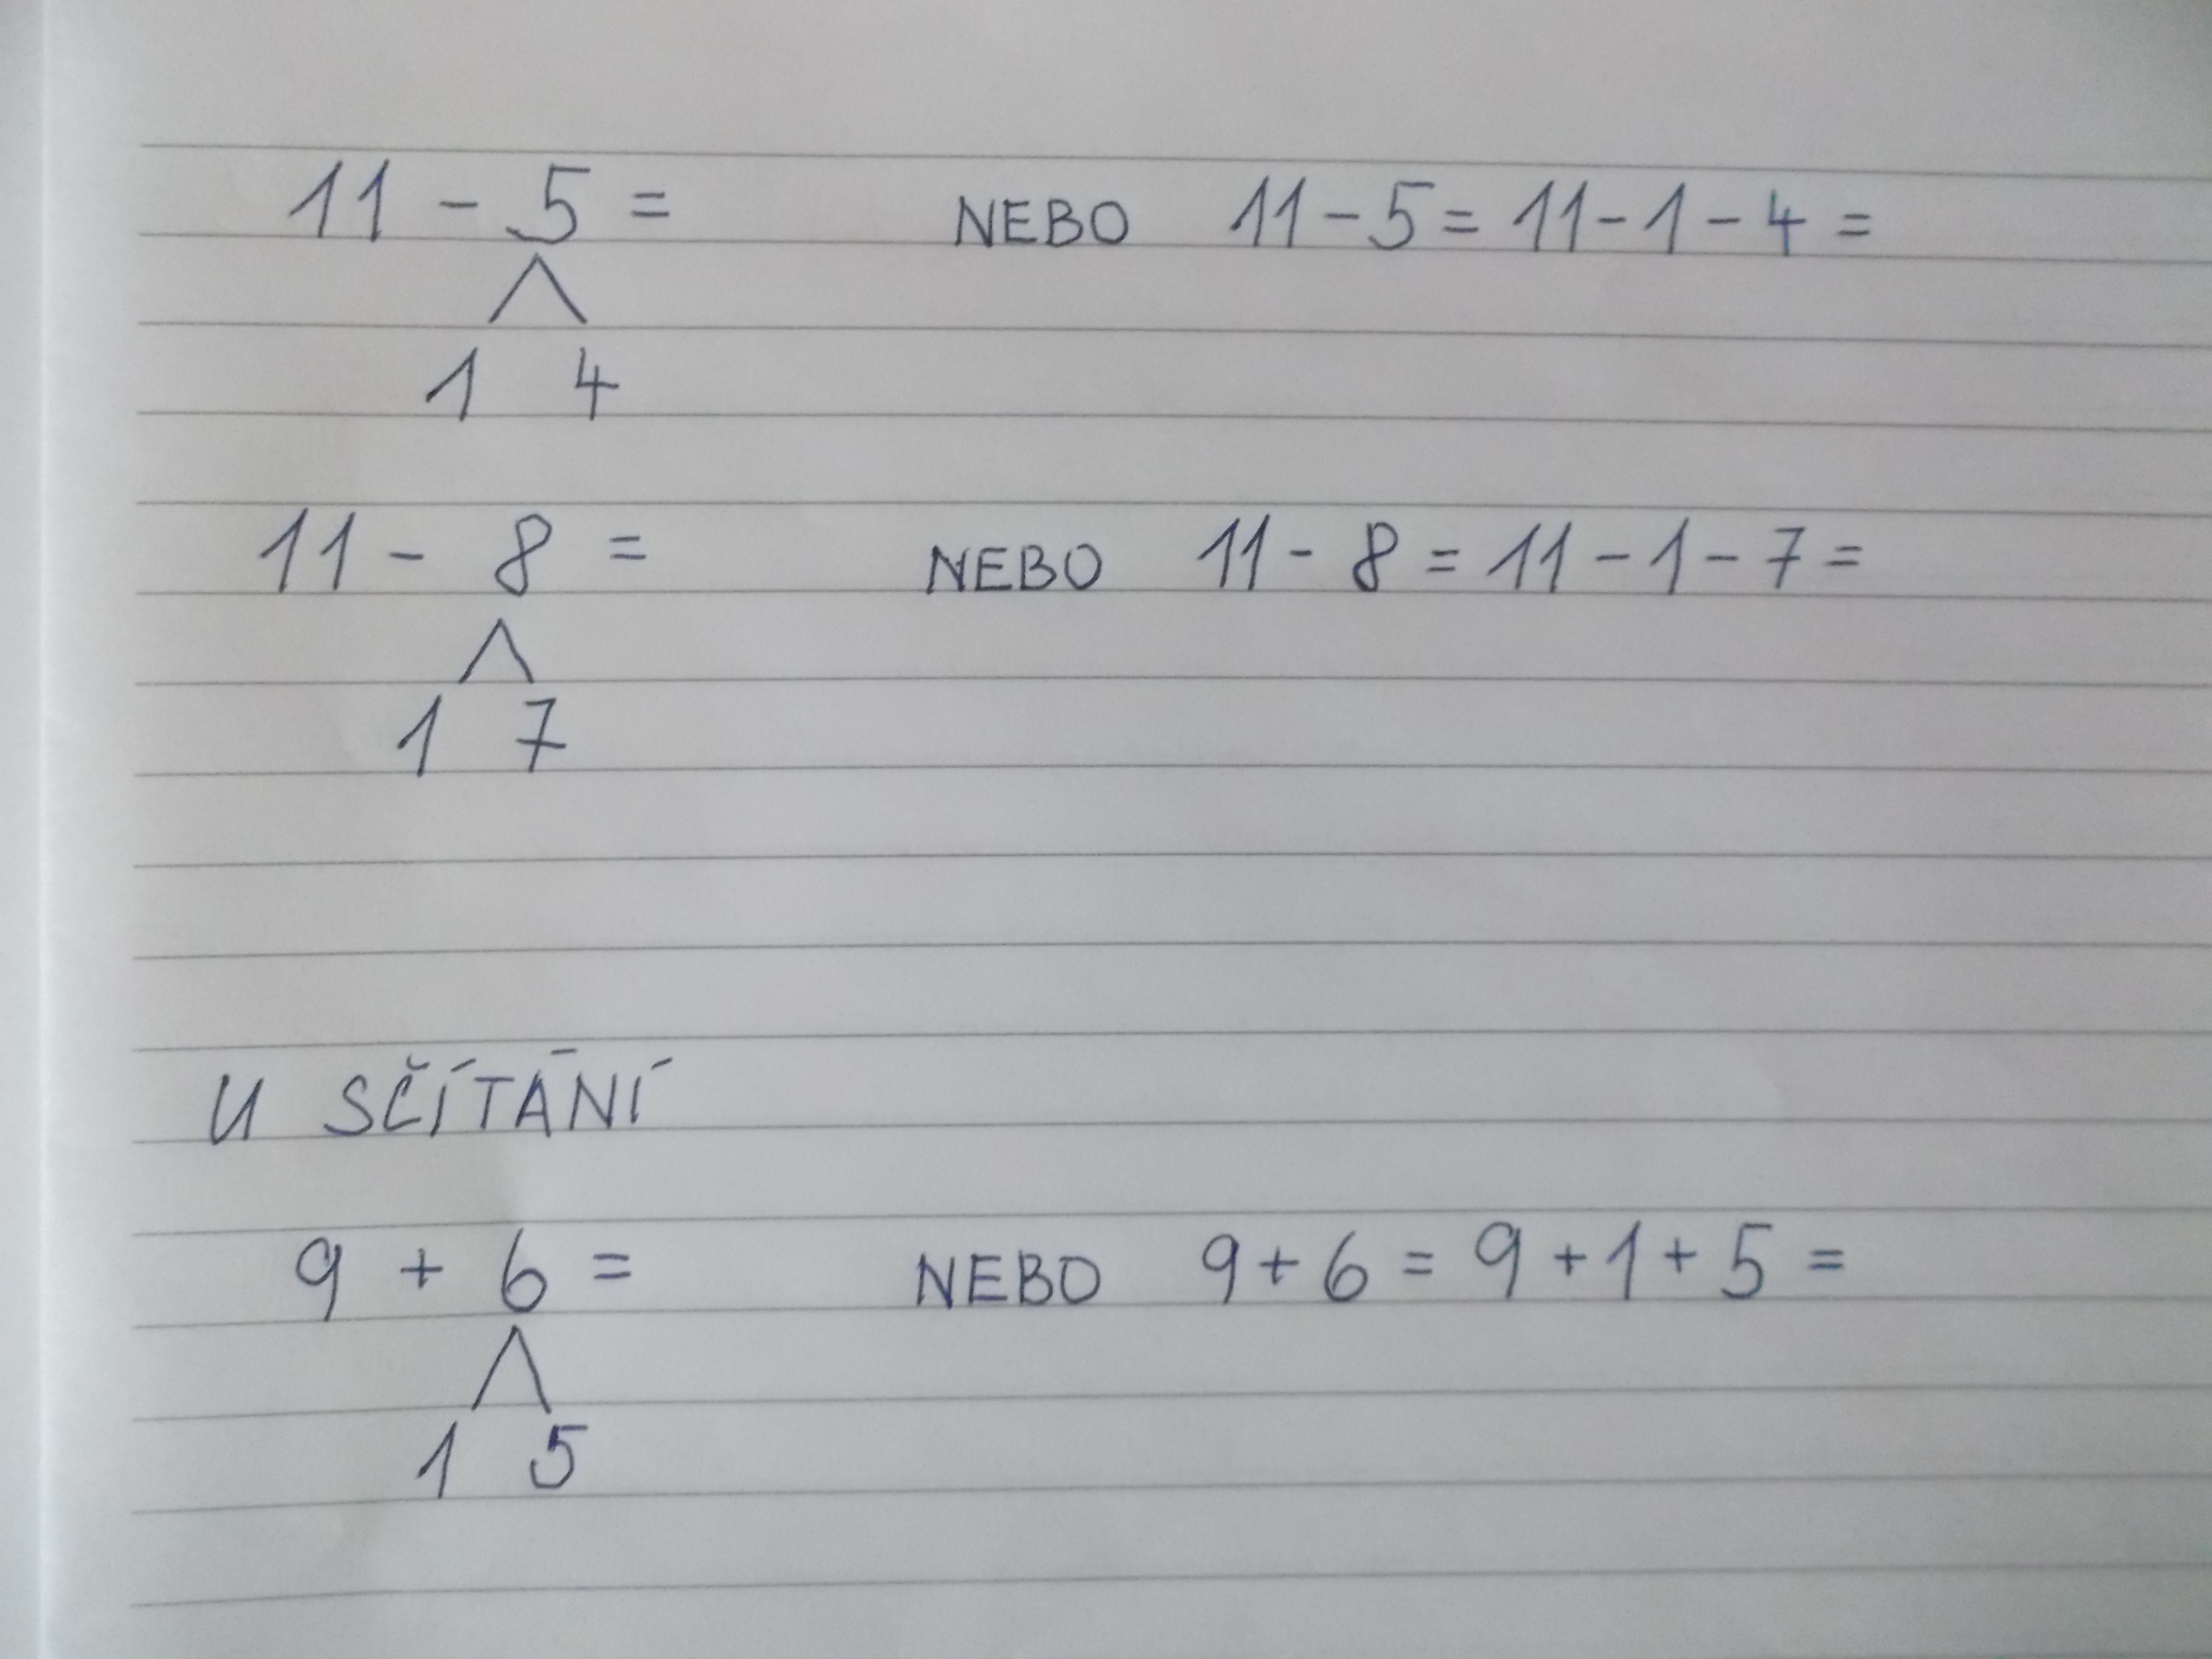 11 - 5 = NEBO 11 - 5 = 11 - 1 - 4 =
1 4
11 - 8 = NEBO 11 - 8 = 11 - 1 - 7 =
1 7
U SČÍTÁNÍ
9 + 6 = NEBO 9 + 6 = 9 + 1 + 5 =
1 5